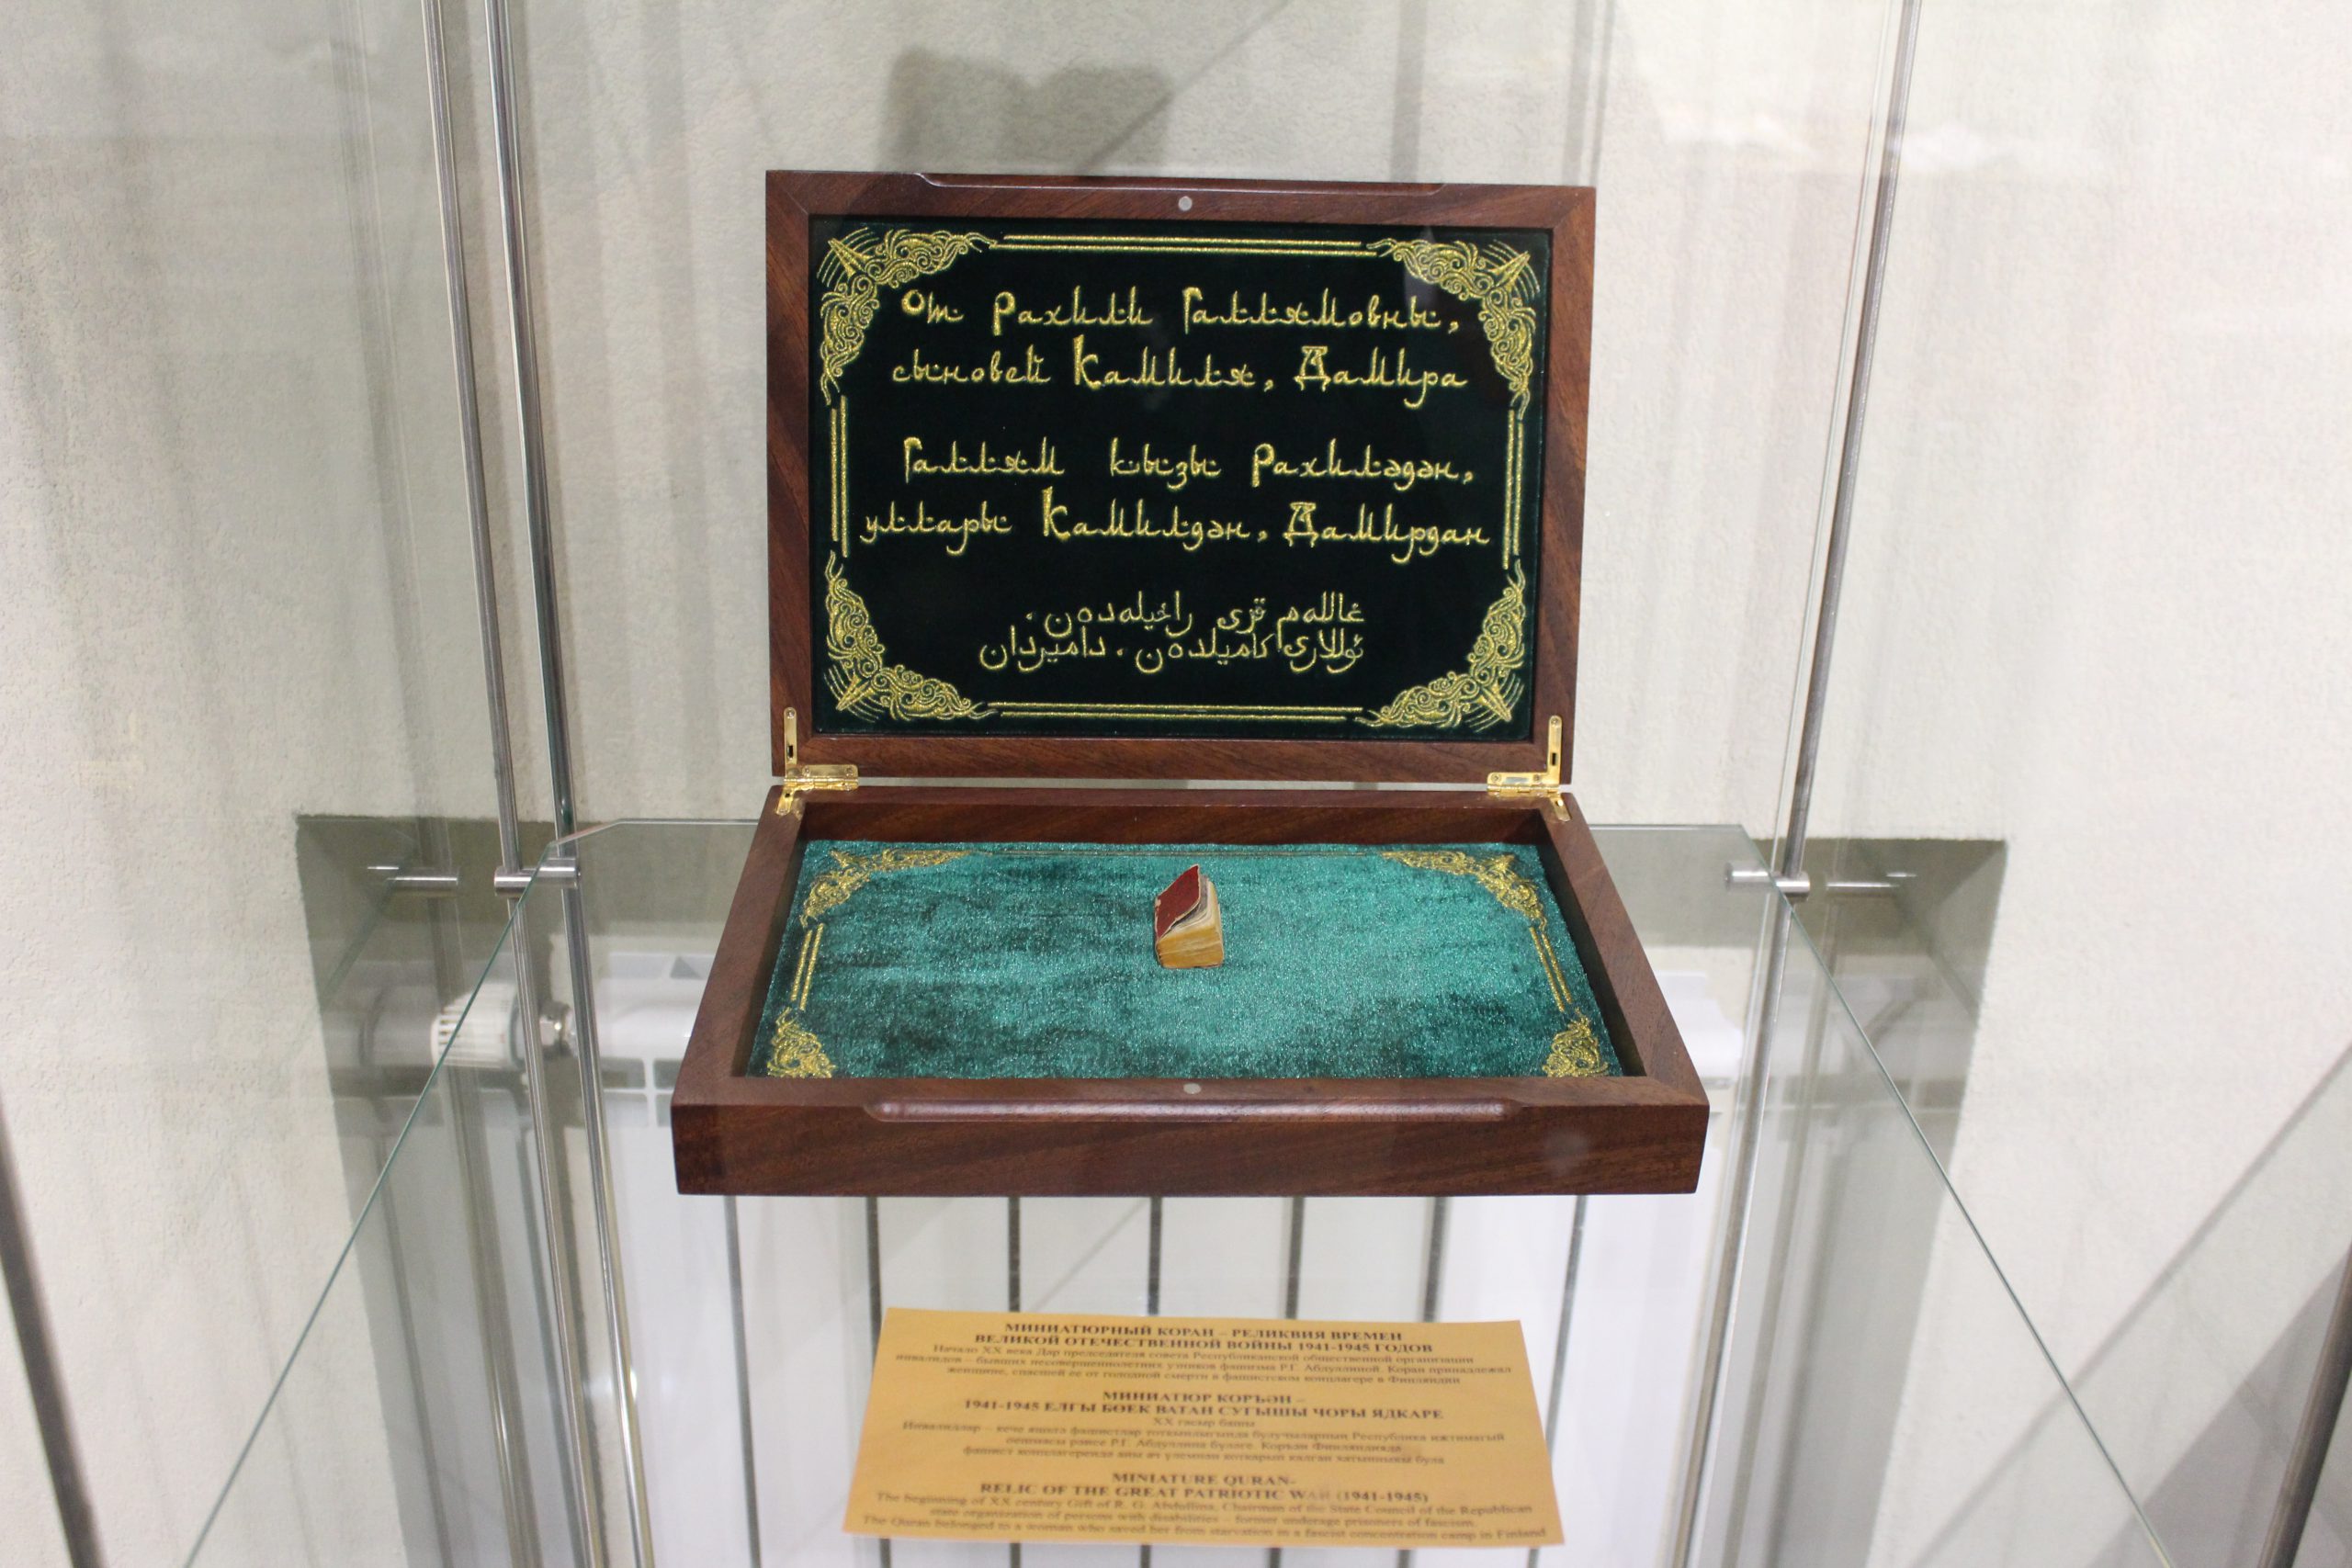 От Рахили Галлямовны,
сыновей Камиля, Дамира
Галлям кызы Рахиләдән,
уллары Камилдән, Дамирдан
غاللەم قزى راخيلەدەن،
ئوللارى كاميلدەن، داميردان
МИНИАТЮРНЫЙ КОРАН – РЕЛИКВИЯ ВРЕМЕН
ВЕЛИКОЙ ОТЕЧЕСТВЕННОЙ ВОЙНЫ 1941-1945 ГОДОВ
Начало XX века Дар председателя совета Республиканской общественной организации
инвалидов – бывших несовершеннолетних узников фашизма Р.Г. Абдуллиной. Коран принадлежал
женщине, спасшей ее от голодной смерти в фашистском концлагере в Финляндии
МИНИАТЮР КОРЪӘН –
1941-1945 ЕЛГЫ БӨЕК ВАТАН СУГЫШЫ ЧОРЫ ЯДКАРЕ
XX гасыр башы
Инвалидлар – кече яшьтә фашистлар тоткынлыгында булучыларның Республика иҗтимагый
оешмасы рәисе Р.Г. Абдуллина бүләге. Коръән Финляндиядә
фашист концлагеренда аны ач үлемнән коткарып калган хатынныкы була
MINIATURE QURAN-
RELIC OF THE GREAT PATRIOTIC WAR (1941-1945)
The beginning of XX century Gift of R. G. Abdullina, Chairman of the State Council of the Republican
state organization of persons with disabilities – former underage prisoners of fascism.
The Quran belonged to a woman who saved her from starvation in a fascist concentration camp in Finland